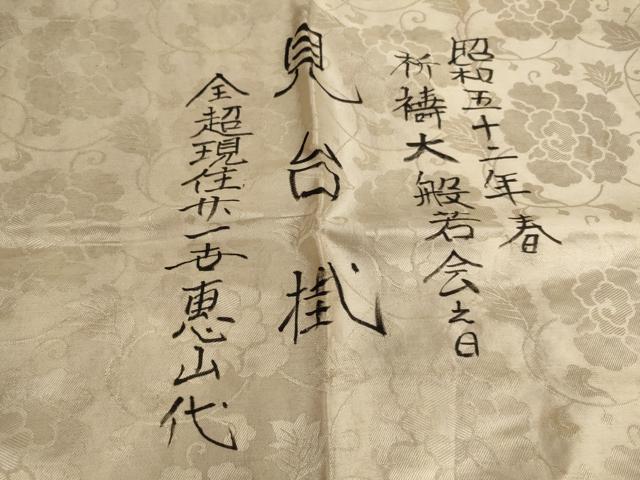 昭和五十二年春
祈禱大般若会之日
見台掛
全超現住廿一世恵山代